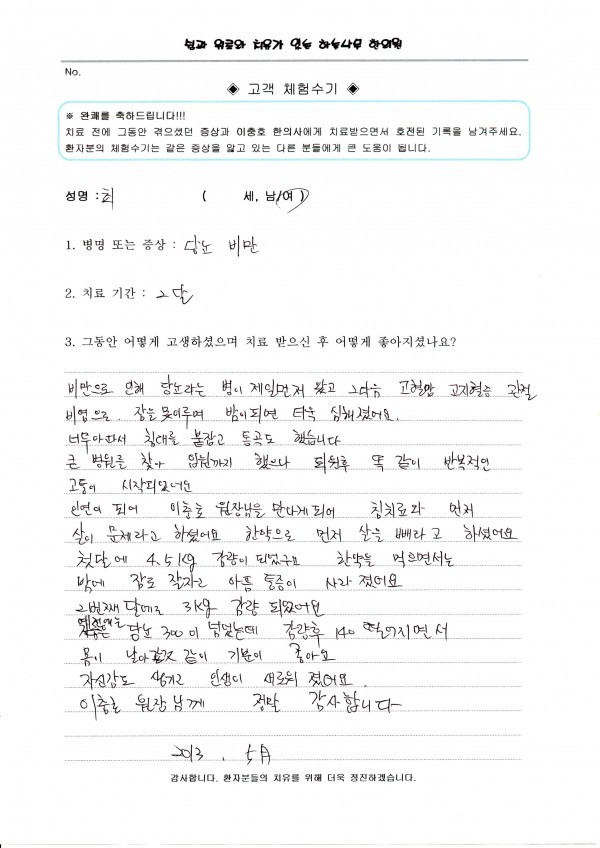 No.
◈ 고객 체험수기 ◈
※ 완쾌를 축하드립니다!!!
치료 전에 그동안 겪으셨던 증상과 이충호 한의사에게 치료받으면서 호전된 기록을 남겨주세요.
환자분의 체험수기는 같은 증상을 앓고 있는 다른 분들에게 큰 도움이 됩니다.
성명 : 최 ( 세, 남/여 )
1. 병명 또는 증상 : 당뇨 비만
2. 치료 기간 : 2달
3. 그동안 어떻게 고생하셨으며 치료 받으신 후 어떻게 좋아지셨나요?
비만으로 인해 당뇨라는 병이 제일먼저 왔고 그다음 고혈압 고지혈증 관절
비염으로. 잠을 못이루며 밤이되면 더욱 심해졌어요.
너무아파서 침대를 붙잡고 통곡도 했습니다
큰 병원를 찾아 입원까지 했으나 퇴원후 똑 같이 반복적인
고통이 시작되었어요
인연이 되어 이충호 원장님을 만나게되어 침치료와 먼저
살이 문제라고 하셨어요 한약으로 먼저 살을 빼라고 하셨어요
첫달에 4.5kg 감량이 되었구요 한약을 먹으면서는
밤에 잠도 잘자고 아픔 통증이 사라졌어요
2번째 달에도 3kg 감량 되었어요
당뇨 300이 넘었는데 감량후 140 떨어지면서
몸이 날아갈것 같이 기분이 좋아요
자신감도 생기고 인생이 새로워 졌어요
이충호 원장님께 정말 감사합니다
2013. 5月
감사합니다. 환자분들의 치유를 위해 더욱 정진하겠습니다.